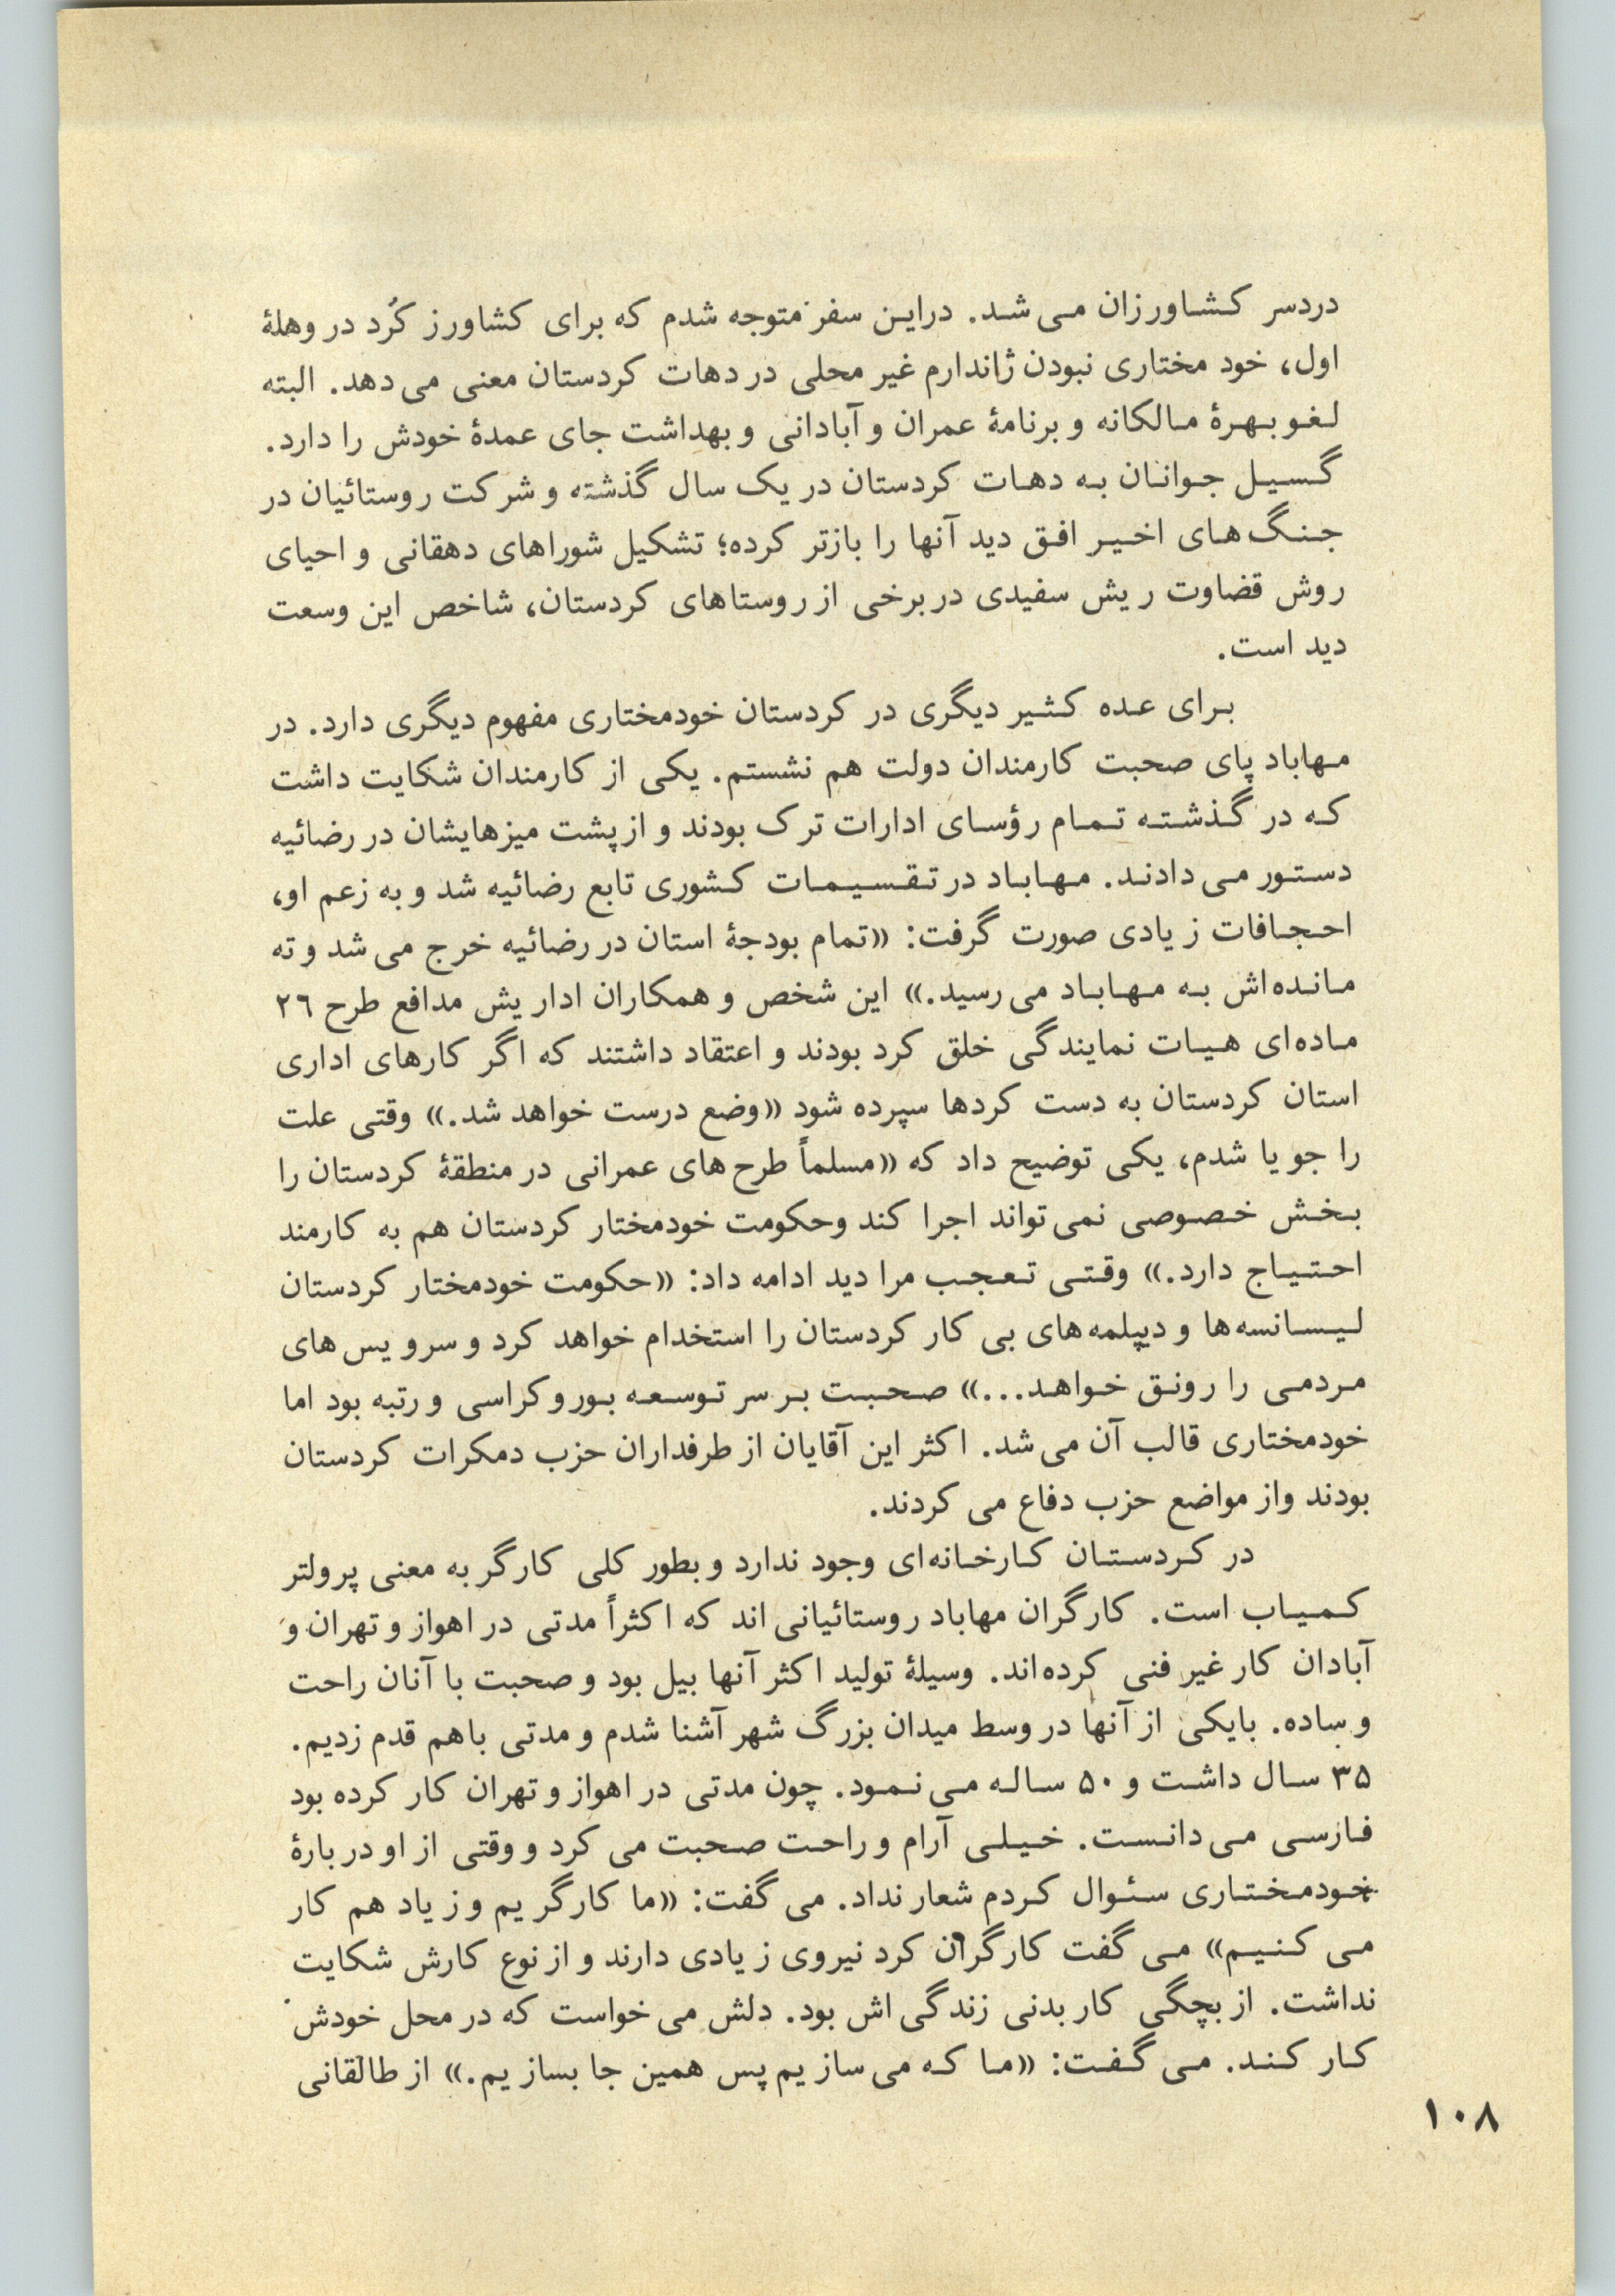 دردسر کشاورزان می شد. دراین سفر متوجه شدم که برای کشاورز کُرد در وهلهٔ
اول، خود مختاری نبودن ژاندارم غیر محلی در دهات کردستان معنی می دهد. البته
لغو بهرهٔ مالکانه و برنامهٔ عمران و آبادانی و بهداشت جای عمدهٔ خودش را دارد.
گسیل جوانان به دهات کردستان در یک سال گذشته و شرکت روستائیان در
جنگ های اخیر افق دید آنها را بازتر کرده؛ تشکیل شوراهای دهقانی و احیای
روش قضاوت ریش سفیدی در برخی از روستاهای کردستان، شاخص این وسعت
دید است.
برای عده کثیر دیگری در کردستان خودمختاری مفهوم دیگری دارد. در
مهاباد پای صحبت کارمندان دولت هم نشستم. یکی از کارمندان شکایت داشت
که در گذشته تمام رؤسای ادارات ترک بودند و از پشت میزهایشان در رضائیه
دستور می دادند. مهاباد در تقسیمات کشوری تابع رضائیه شد و به زعم او،
احجافات زیادی صورت گرفت: «تمام بودجهٔ استان در رضائیه خرج می شد و ته
مانده اش به مهاباد می رسید.» این شخص و همکاران اداریش مدافع طرح ۲۶
ماده ای هیات نمایندگی خلق کرد بودند و اعتقاد داشتند که اگر کارهای اداری
استان کردستان به دست کردها سپرده شود «وضع درست خواهد شد.» وقتی علت
را جویا شدم، یکی توضیح داد که «مسلماً طرح های عمرانی در منطقهٔ کردستان را
بخش خصوصی نمی تواند اجرا کند وحکومت خودمختار کردستان هم به کارمند
احتیاج دارد.» وقتی تعجب مرا دید ادامه داد: «حکومت خودمختار کردستان
لیسانسه ها و دیپلمه های بی کار کردستان را استخدام خواهد کرد و سرویس های
مردمی را رونق خواهد...» صحبت بر سر توسعه بوروکراسی و رتبه بود اما
خودمختاری قالب آن می شد. اکثر این آقایان از طرفداران حزب دمکرات کردستان
بودند واز مواضع حزب دفاع می کردند.
در کردستان کارخانه ای وجود ندارد و بطور کلی کارگر به معنی پرولتر
کمیاب است. کارگران مهاباد روستائیانی اند که اکثراً مدتی در اهواز و تهران و
آبادان کار غیر فنی کرده اند. وسیلهٔ تولید اکثر آنها بیل بود و صحبت با آنان راحت
و ساده. بایکی از آنها در وسط میدان بزرگ شهر آشنا شدم و مدتی باهم قدم زدیم.
۳۵ سال داشت و ۵۰ ساله می نمود. چون مدتی در اهواز و تهران کار کرده بود
فارسی می دانست. خیلی آرام و راحت صحبت می کرد و وقتی از او دربارهٔ
خودمختاری سئوال کردم شعار نداد. می گفت: «ما کارگریم و زیاد هم کار
می کنیم» می گفت کارگران کرد نیروی زیادی دارند و از نوع کارش شکایت
نداشت. از بچگی کار بدنی زندگی اش بود. دلش می خواست که در محل خودش
کار کند. می گفت: «ما که می سازیم پس همین جا بسازیم.» از طالقانی
۱۰۸